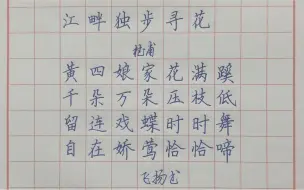 江畔独步寻花
杜甫
黄四娘家花满蹊
千朵万朵压枝低
留连戏蝶时时舞
自在娇莺恰恰啼
飞扬书